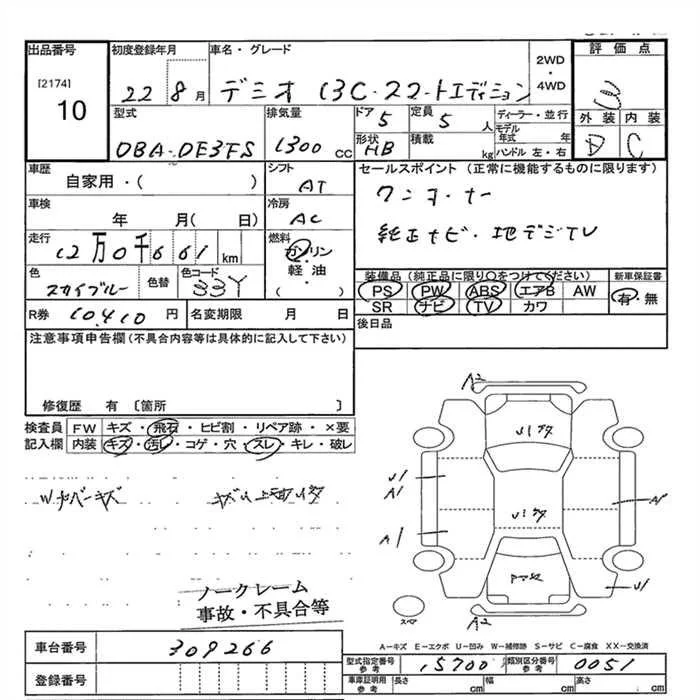 出品番号
[2174]
10
初度登録年月
22 8月
車名・グレード
デミオ 13C・
2WD
・
4WD
評価点
3
外装 内装
D C
型式
DBA-DE3FS
排気量
1300 cc
ドア 5
定員 5 人
形状 HB
積載 kg
ディーラー・並行
モデル年式 年
ハンドル 左・右
車歴
自家用・( )
シフト
AT
車検
年 月( 日)
冷房
AC
走行
12万0千661km
燃料
ガソリン
・
軽油
・
( )
色
スカイブルー
色替
色コード
33Y
セールスポイント (正常に機能するものに限ります)
ワンオーナー
純正ナビ・地デジTV
装備品 (純正品に限り○をつけてください)
PS PW ABS エアB AW
SR ナビ TV カワ
新車保証書
有・無
R券 10,410 円
名変期限 月 日
後日品
注意事項申告欄(不具合内容等は具体的に記入して下さい)
修復歴 有 〔箇所 〕
検査員記入欄
FW キズ・飛石・ヒビ割・リペア跡・×要
内装 キズ・汚レ・コゲ・穴・スレ・キレ・破レ
ノークレーム
事故・不具合等
A2
U1
A1
A1
A1
U1
A2
スペア
A－キズ E－エクボ U－凹み W－補修跡 S－サビ C－腐食 XX－交換済
車台番号 309266
登録番号
型式指定番号参考 15700
類別区分番号参考 0051
車庫証明用参考 長さ cm 幅 cm 高さ cm